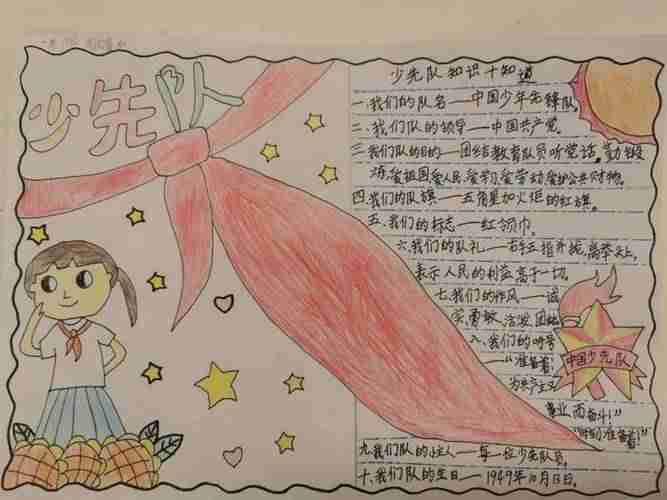 少先队
少先队知识十知道
一.我们的队名——中国少年先锋队
二.我们队的领导——中国共产党。
三.我们队的目的——团结教育队员听党话。勤锻
炼,爱祖国,爱人民,爱学习,爱劳动,爱护公共财物。
四.我们的队旗——五角星加火炬的红旗。
五.我们的标志——红领巾。
六.我们的队礼——右手五指并拢,高举头上,
表示人民的利益高于一切。
七.我们的作风——诚
实,勇敢,活泼,团结
八.我们的呼号
——“准备着!
为共产主义
事业而奋斗!”
“时刻准备着!”
中国少先队
九.我们队的主人——每一位少先队员。
十.我们队的生日——1949年10月13日。